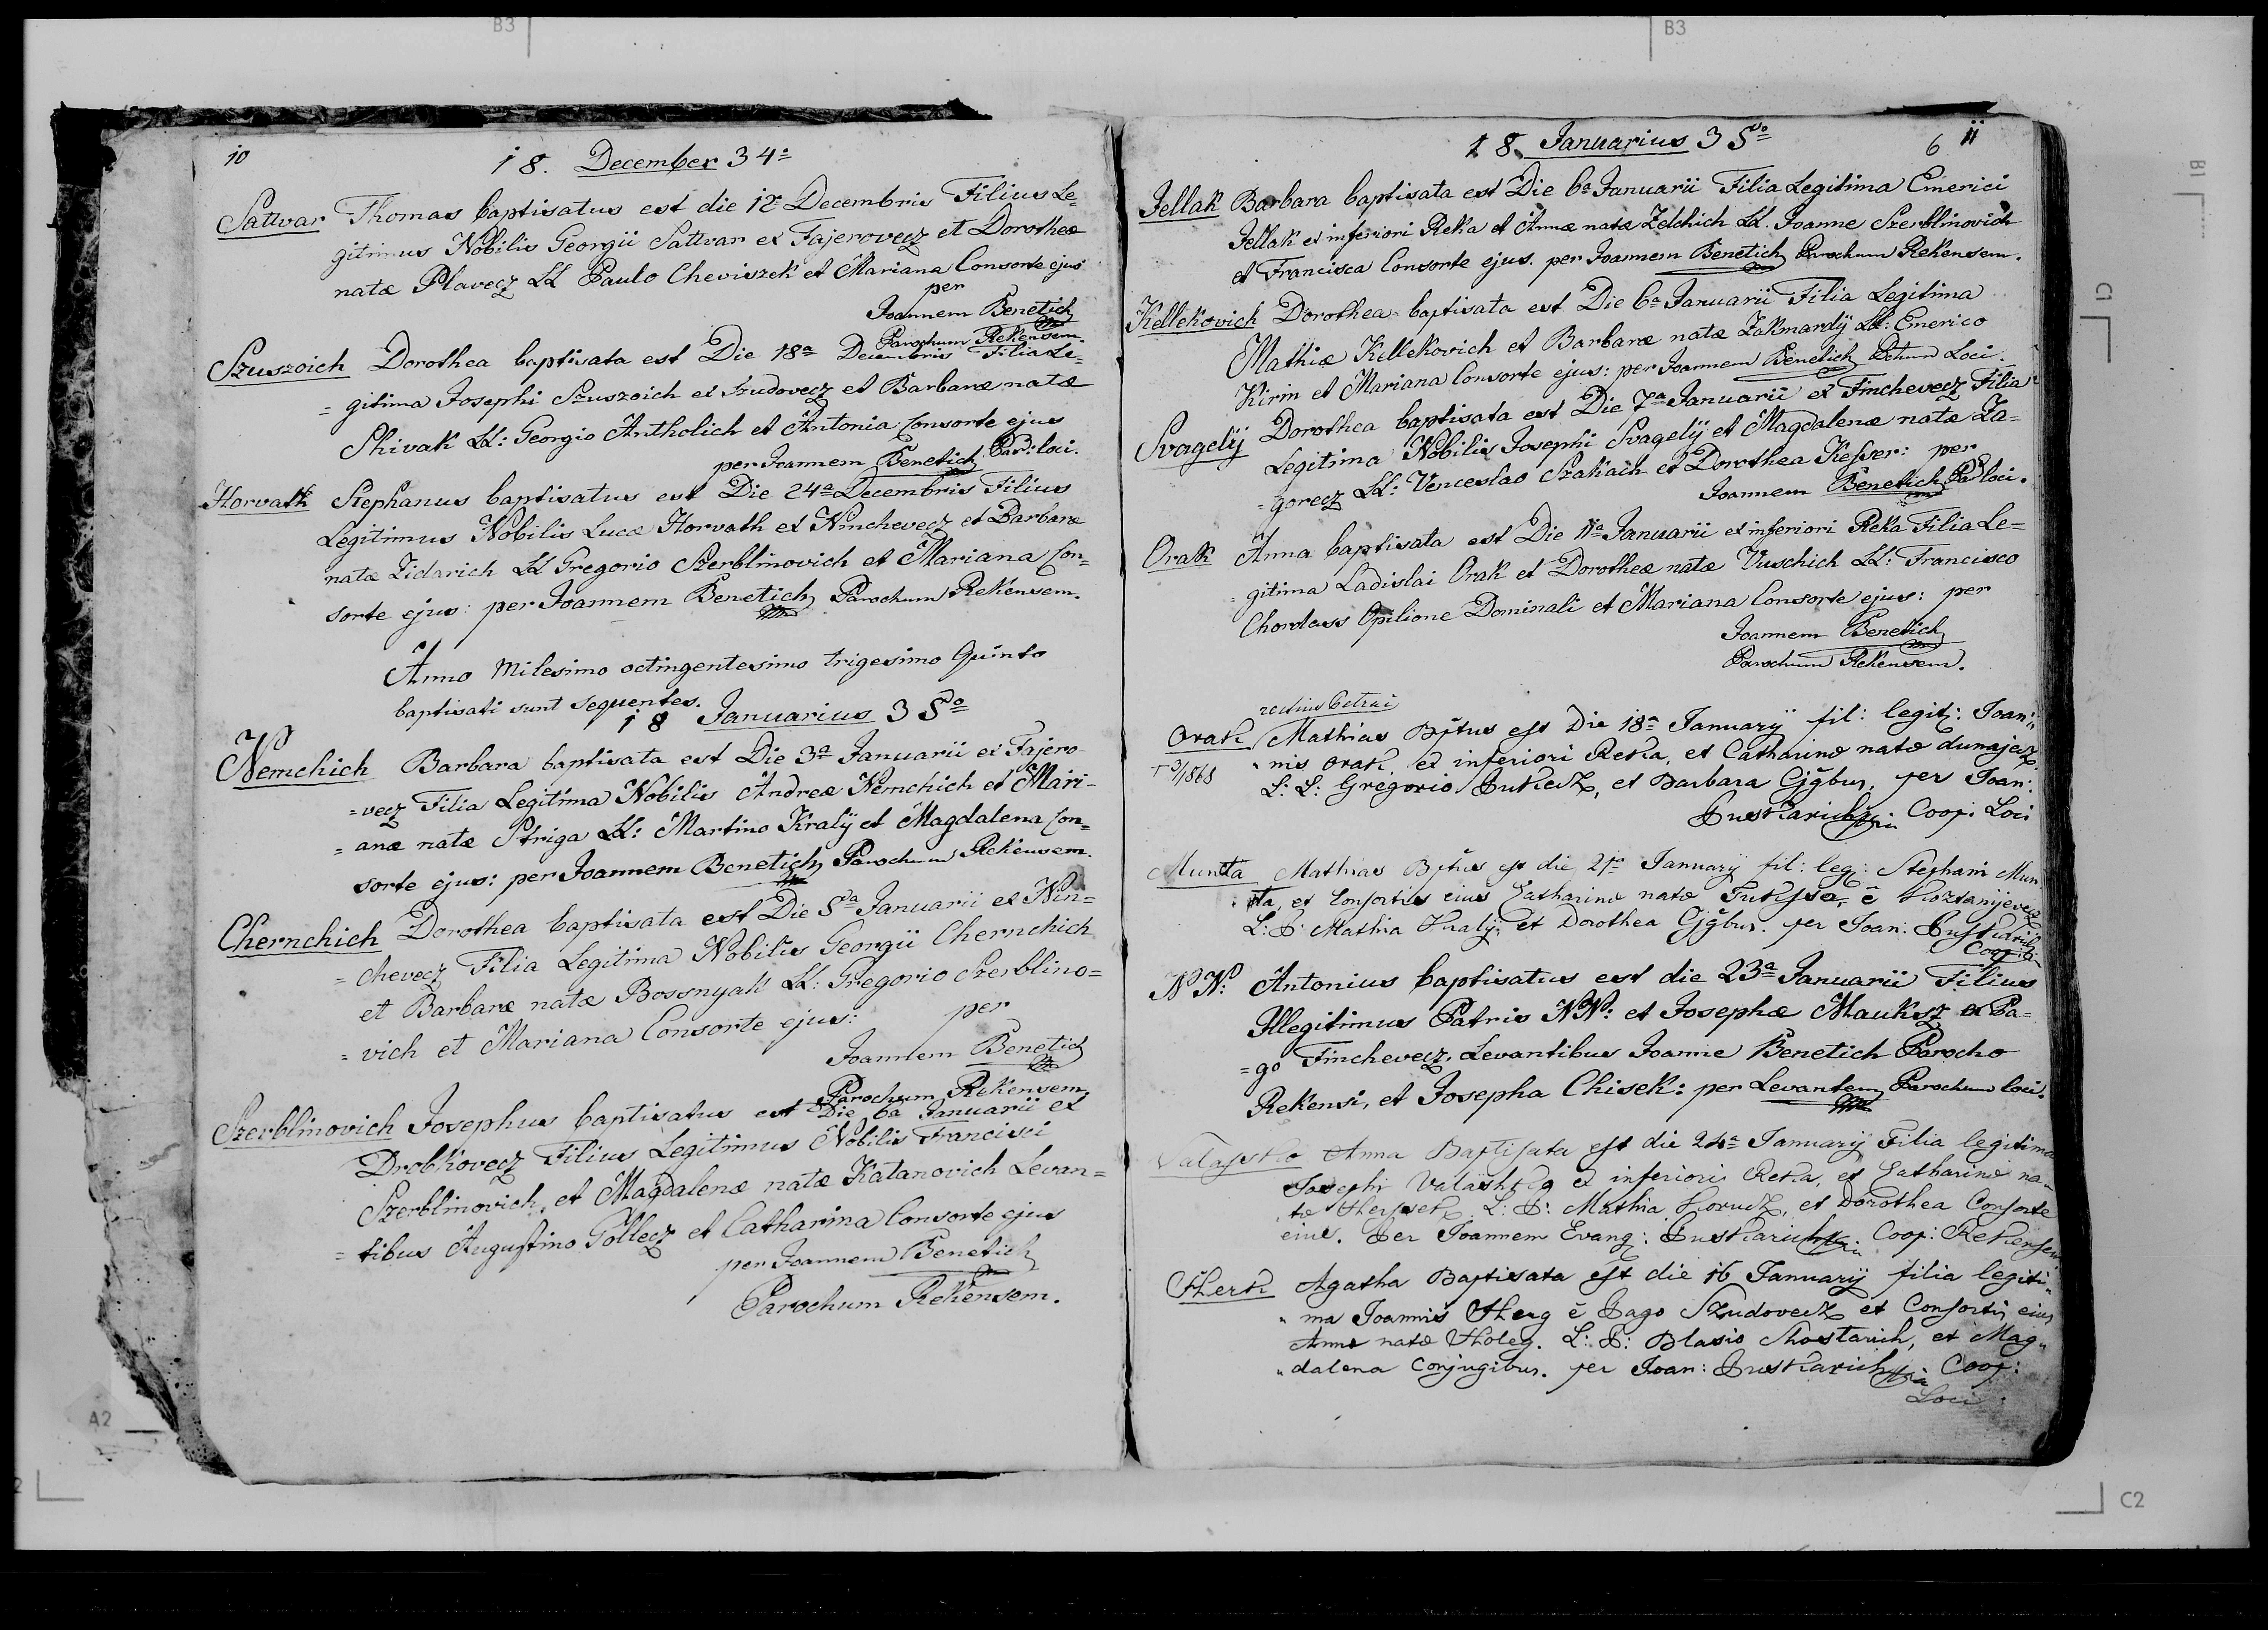 B3
B3
10
18. December 34º
Sattvar Thomas baptisatus est die 12ª Decembris Filius Le=
gitimus Nobilis Georgii Sattvar ex Fajerovecz et Dorotheæ
natæ Plavecz LL Paulo Cheviszek et Mariana Consorte ejus
per
Joannem Benetich
Parochum Rekensem.
Szuszoich Dorothea baptisata est Die 18ª Decembris Filia Le=
= gitima Josephi Szuszoich ex Szudovecz et Barbaræ natæ
Shivak LL: Georgio Antholich et Antonia Consorte ejus
per Joannem Benetich Par: loci.
Horvath Stephanus baptisatus est Die 24ª Decembris Filius
Legitimus Nobilis Lucæ Horvath ex Ninchevecz et Barbaræ
natæ Zidarich LL Gregorio Szerblinovich et Mariana Con=
sorte ejus: per Joannem Benetich Parochum Rekensem.
Anno Milesimo octingentesimo trigesimo Quinto
baptisati sunt sequentes.
18 Januarius 35º
Nemchich Barbara baptisata est Die 3ª Januarii ex Fajero-
=vecz Filia Legitima Nobilis Andreæ Nemchich et Mari-
= anæ natæ Striga LL: Martino Kralÿ et Magdalena Con=
sorte ejus: per Joannem Benetich Parochum Rekensem.
Chernchich Dorothea baptisata est Die 5ª Januarii ex Nin=
= chevecz Filia Legitima Nobilis Georgii Chernchich
et Barbaræ natæ Bossnyak LL: Gregorio Szerblino=
= vich et Mariana Consorte ejus: per
Joannem Benetich
Parochum Rekensem
Szerblinovich Josephus baptisatus est Die 6ª Januarii ex
Drobkovecz Filius Legitimus Nobilis Francisci
Szerblinovich, et Magdalenæ natæ Katanovich Levan=
= tibus Augustino Göllecz et Catharina Consorte ejus
per Joannem Benetich
Parochum Rekensem.
18. Januarius 35º
6 11
Jellak Barbara baptisata est Die 6ª Januarii Filia Legitima Emerici
Jellak ex inferiori Reka et Annæ natæ Zelchich LL. Joanne Szerblinovich
et Francisca Consorte ejus. per Joannem Benetich Parochum Rekensem.
Kellekovich Dorothea baptisata est Die 6ª Januarii Filia Legitima
Mathiæ Kellekovich et Barbaræ natæ Zakmardÿ LL: Emerico
Kirin et Mariana Consorte ejus: per Joannem Benetich Loci.
Svagelÿ Dorothea baptisata est Die 7ª Januarii ex Finchevecz Filia
Legitima Nobilis Josephi Svagelÿ et Magdalenæ natæ Za=
= gorecz LL: Venceslao Szakaich et Dorothea Kesser: per
Joannem Benetich Par loci.
Orak Anna baptisata est Die 11ª Januarii ex inferiori Reka Filia Le=
= gitima Ladislai Orak et Dorotheæ natæ Vuschich LL: Francisco
Chordass Opilione Dominali et Mariana Consorte ejus: per
Joannem Benetich
Parochum Rekensem.
rectius Petrai
Orak Mathias Bptus est Die 18ª Januarÿ fil: legit: Joan„
† 3/1868 „nis Orak ex inferiori Reka, et Catharinæ natæ dunajecz
L: L: Gregorio, et Barbara, per Joan:
Coop: Loci
Munta Mathias Bptus est die 21ª Januarÿ fil: leg: Stephani Mun
ta, et Consortis eius Catharinæ natæ
L: P: Mathia Kralÿ, et Dorothea per Joan:
Coop:
N N: Antonius baptisatus est die 23ª Januarii Filius
Illegitimus Patris NN: et Josephæ Mauksz ex Pa=
=go Finchevecz, Levantibus Joanne Benetich Parocho
Rekensi, et Josepha Chisek: per Levantem Parochum loci.
Anna Baptisata est die 24ª Januarÿ Filia legitima
Josephi ex inferiori Reka, et Catharinæ na„
tæ L: P: Mathia, et Dorothea Consorte
eius. Per Joannem Evang: Coop: Rekensem
Agatha Baptisata est die 16 Januarÿ filia legiti„
„ ma Joannis e Pago Szudovecz et Consortis eius
Annæ natæ L: P: Blasio Shostarich, et Mag„
„dalena Conjugibus. per Joan: Coop:
Loci
B1
C1
A2
C2